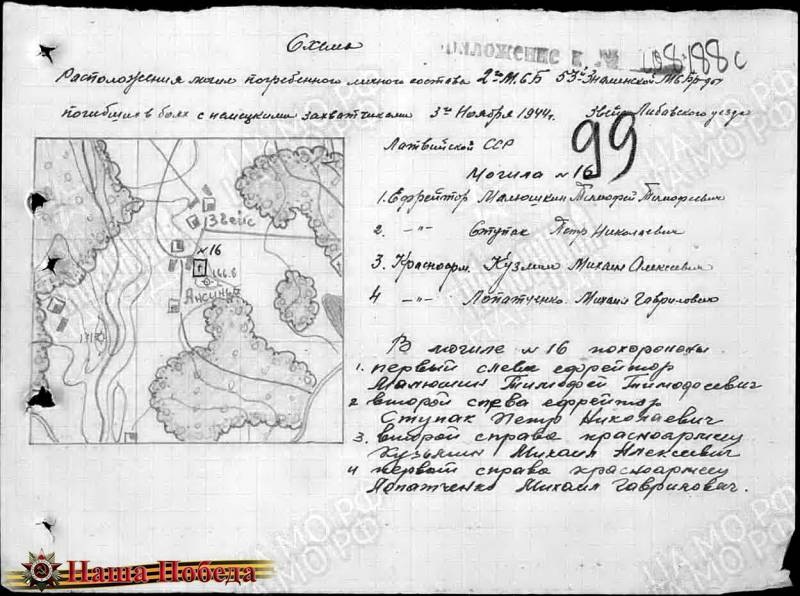 Схема
Приложение к №
Расположения могил погребенного личного состава 2го М.С.Б 53й Знаменской
погибших в боях с немецкими захватчиками 3го Ноября 1944г. Либавского уезда
Латвийской ССР
99
Могила №16
1. Ефрейтор Малюшкин Тимофей Тимофеевич
2. -"- Ступак Петр Николаевич
3. Красноарм. Кузьмин Михаил Алексеевич
4 -"- Лопатченко Михаил Гаврилович
Звейс
№16
166.8
Янсини
В могиле №16 похоронены
1. первый слева ефрейтор
Малюшкин Тимофей Тимофеевич
2 второй слева ефрейтор
Ступак Петр Николаевич
3. второй справа красноармеец
Кузьмин Михаил Алексеевич
4 первый справа красноармеец
Лопатченко Михаил Гаврилович.
Наша Победа
ЦАМО РФ